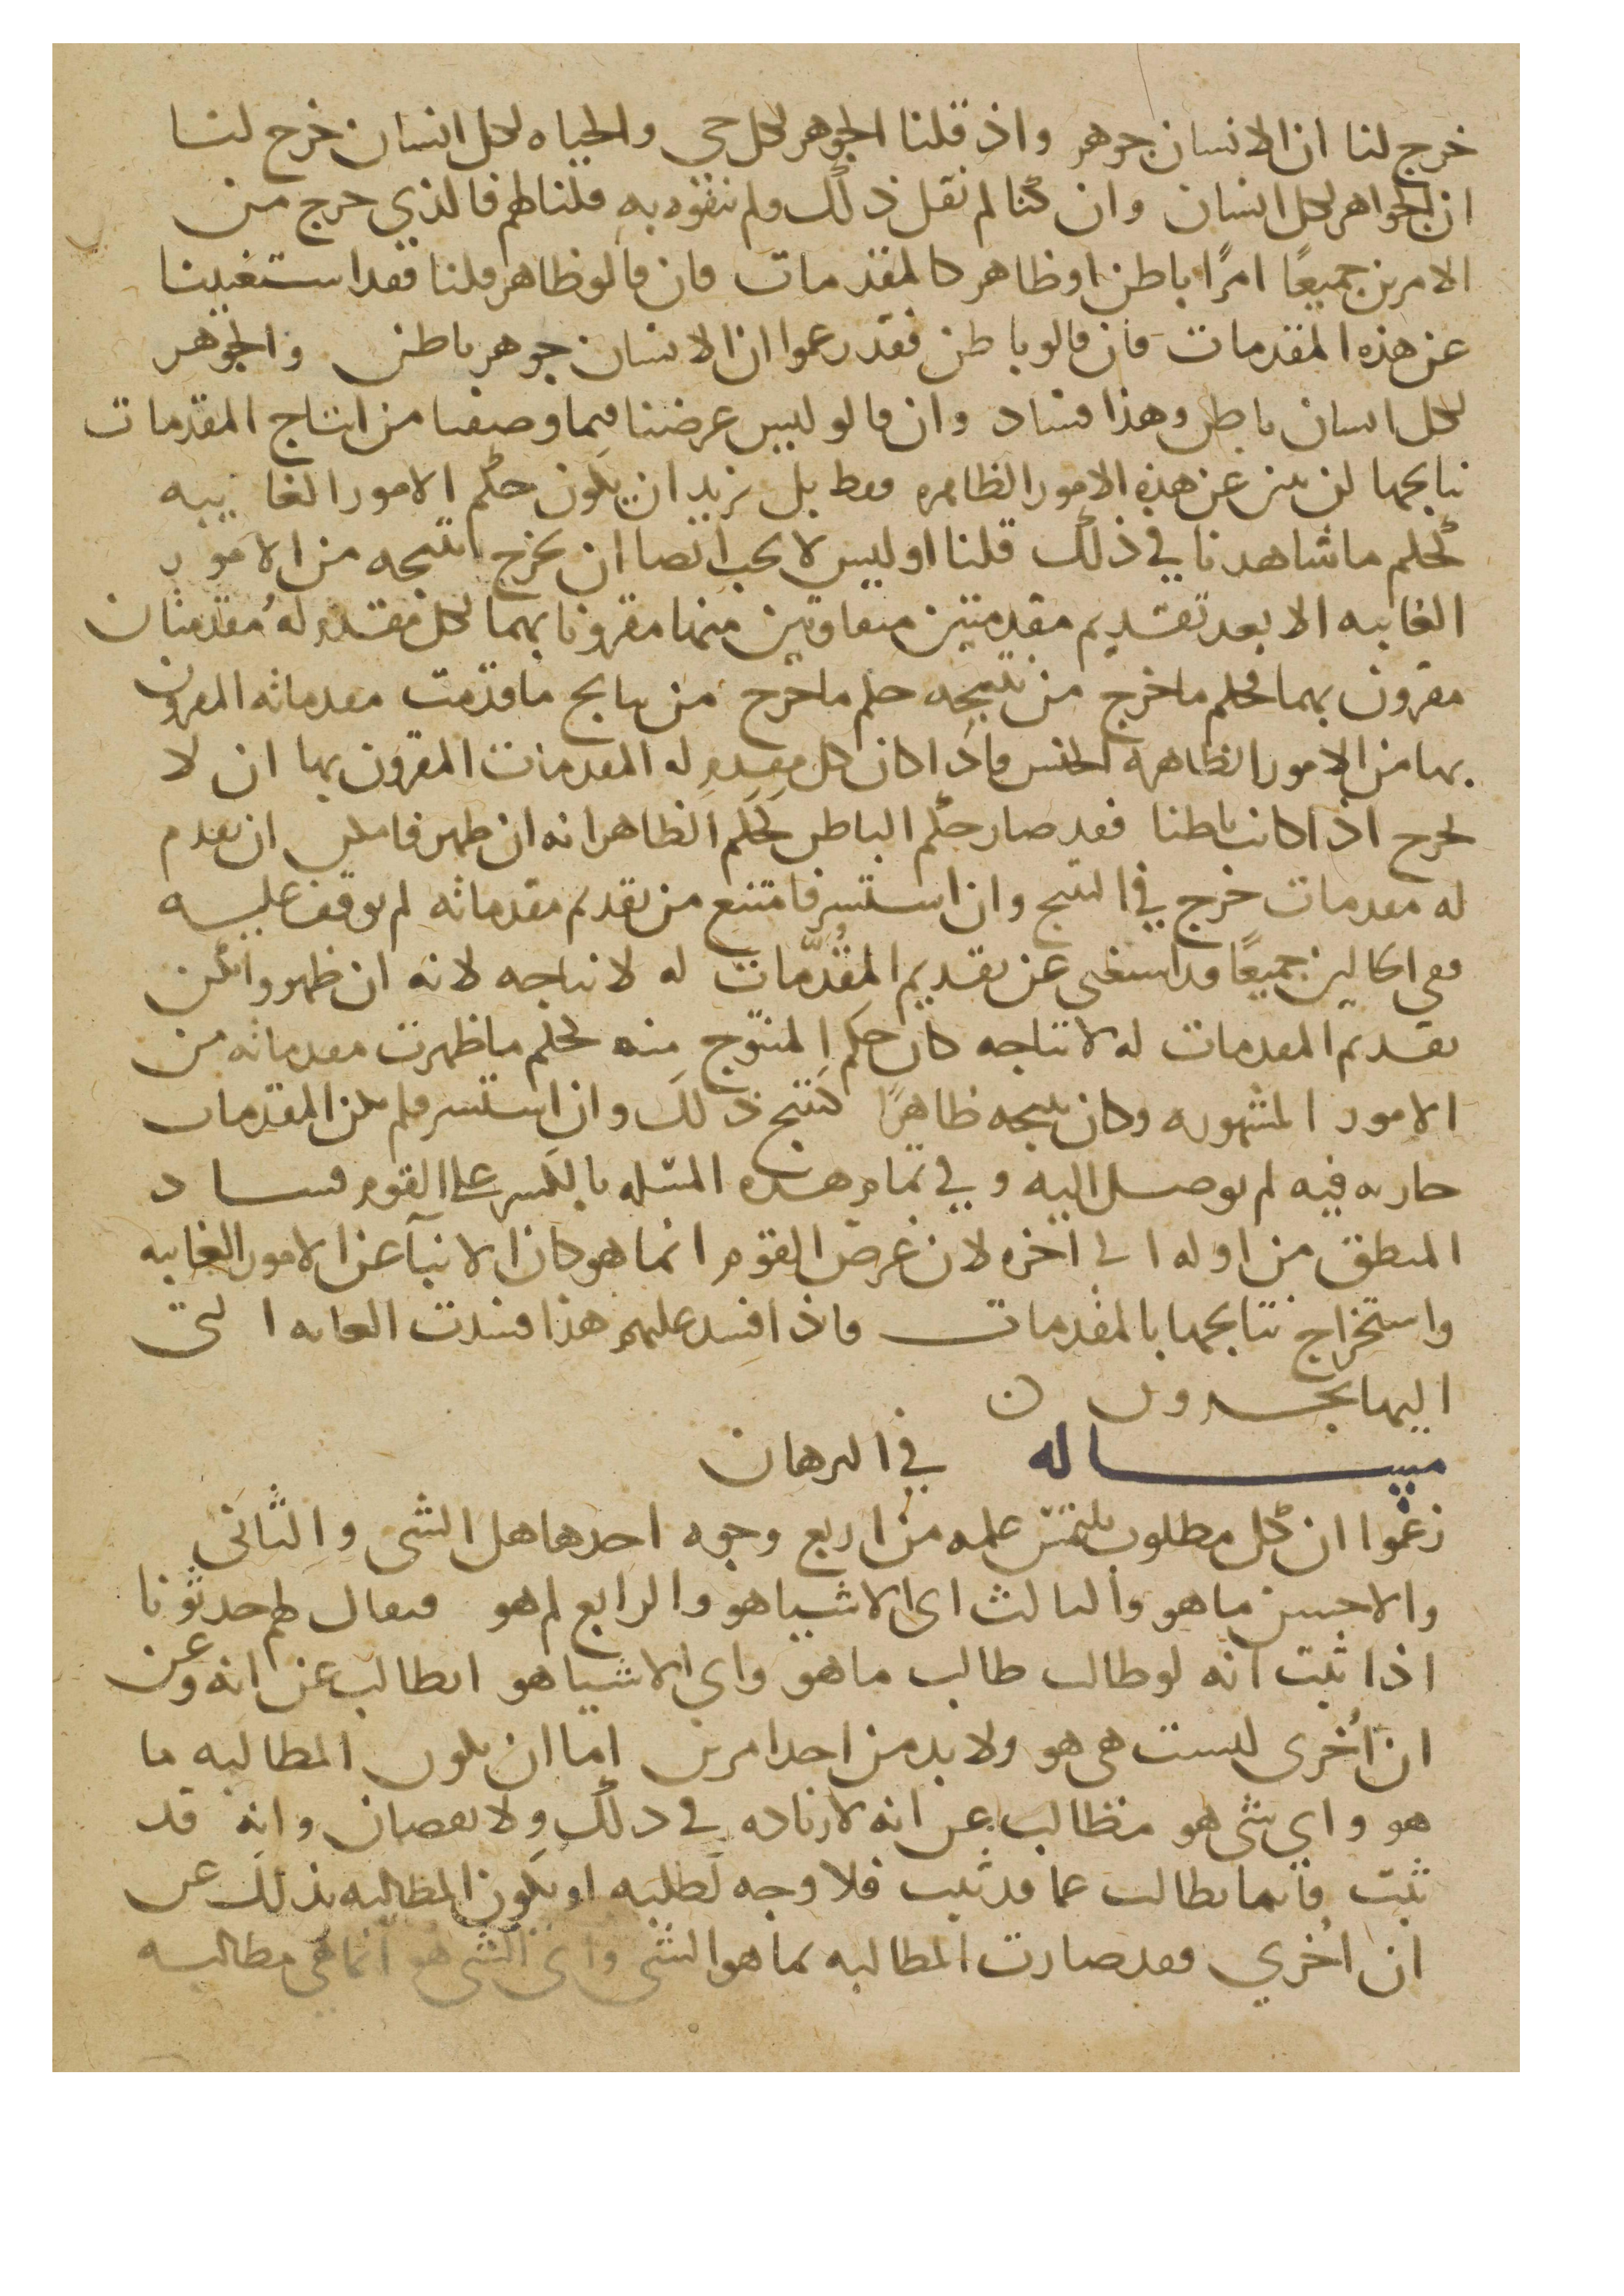 خرج لنا ان الانسان جوهر واذ قلنا الجوهر لكل حي والحياه لكل انسان خرج لنا
ان الجواهر لكل انسان وان كنا لم نقل ذلك ولم نتفوه به قلنا لهم فالذي خرج من
الامرين جميعًا امرًا باطن او ظاهر كالمقدمات فان قالو ظاهر قلنا فقد استغنينا
عن هذه المقدمات فان قالو باطن فقد زعموا ان الانسان جوهر باطن والجوهر
لكل انسان باطن وهذا فساد وان قالو ليس غرضنا فيما وصفنا من انتاج المقدمات
نتايجها عن هذه الامور الظاهره فقط بل نريد ان يكون حكم الامور الغايبه
كحكم ما شاهدنا في ذلك قلنا اوليس لا يجب ايضا ان يخرج نتيجه من الامور
الغايبه الا بعد تقديم مقدمتين متفاوتين منها مقرونا بهما لكل مقدم له مقدمتان
مقرون بهما فحكم ما خرج من نتيجه حكم ما خرج من نتايج ما قدمت مقدماته المقرون
بها من الامور الظاهره للحس فاذا كان كل مقدم له المقدمات المقرون بها ان لا
يخرج اذا كانت باطنا فقد صار حكم الباطن كحكم الظاهر انه ان ظهر فامكن ان يقدم
له مقدمات خرج في النتج وان استسر فامتنع من تقديم مقدماته لم يوقف عليه
ففي الحالين جميعًا قد استغني عن تقديم المقُدَّمات له لانتاجه لانه ان ظهر وامكن
تقديم المقدمات له لانتاجه كان حكم المنتوج منه كحكم ما ظهرت مقدماته من
الامور المشهوره وكان نتيجه ظاهرًا كنتج ذلك وان استسر فلم يكن المقدمات
جاريه فيه لم يوصل اليه وفي تمام هذه المسله بالكسر على القوم فساد
المنطق من اوله الى اخره لان غرض القوم انما هو كان الانبآ عن الامور الغايبه
واستخراج نتايجها بالمقدمات فاذا افسد عليهم هذا فسدت الغايه التي
اليها يجرون ن
مساله في البرهان
زعموا ان كل مطلوب يلتمس علمه من اربع وجوه احدها هل الشى والثاني
والاحسن ما هو والثالث اى الاشيا هو والرابع لم هو فيقال لهم حدثونا
اذا ثبت انه لو طالب طالب ما هو واي الاشيا هو ايطالب عن انه وعن
ان اُخرى ليست هي هو ولا بد من احد امرين اما ان يكون المطالبه ما
هو واي شى هو مطالب عن انه لا زياده في ذلك ولا نقصان وانه قد
ثبت فانما يطالب عما قد ثبت فلا وجه لطلبه او يكون المطالبه بذلك عن
ان اُخرى فقد صارت المطالبه بما هو الشى واى الشى هو انما هي مطالبه